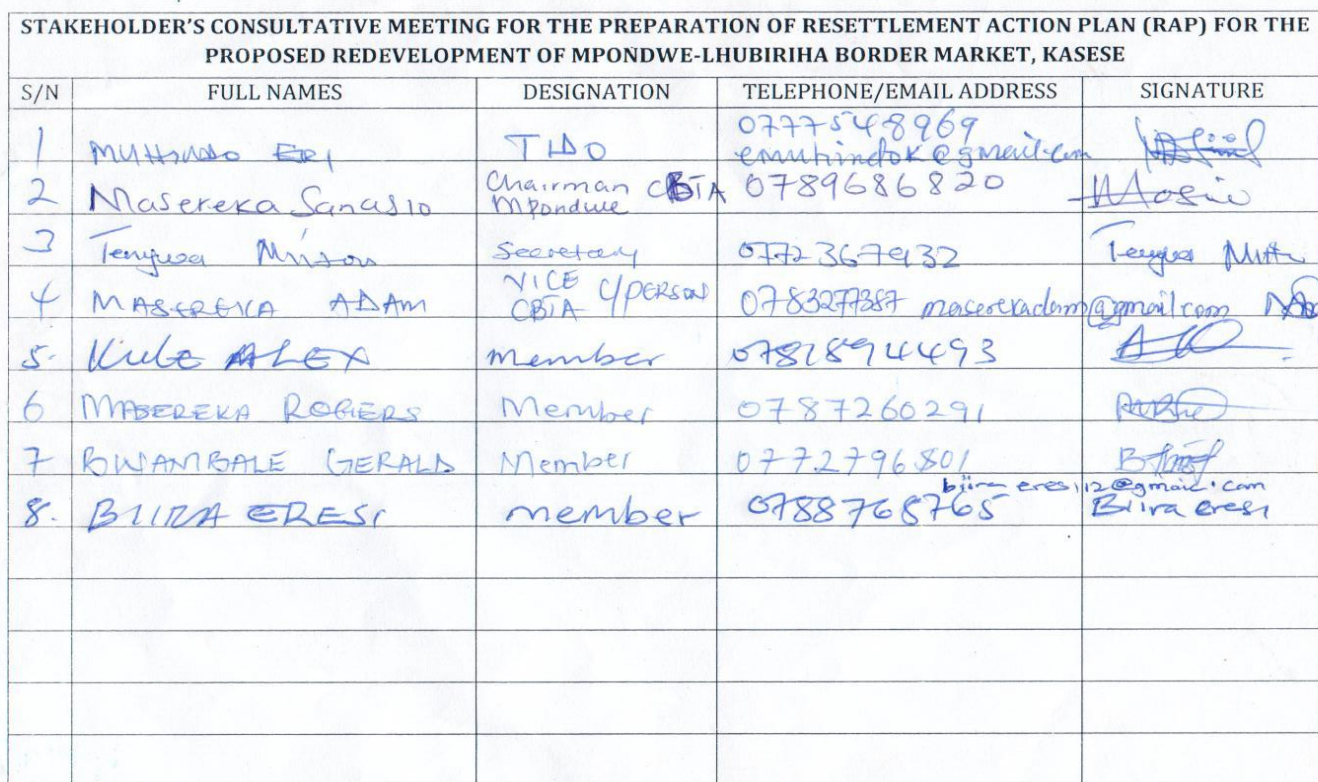 STAKEHOLDER'S CONSULTATIVE MEETING FOR THE PREPARATION OF RESETTLEMENT ACTION PLAN (RAP) FOR THE
PROPOSED REDEVELOPMENT OF MPONDWE-LHUBIRIHA BORDER MARKET, KASESE
S/N FULL NAMES DESIGNATION TELEPHONE/EMAIL ADDRESS SIGNATURE
0777548969
1 MUHINDO ERI TIDO emuhindok@gmail.com
2 Masereka Sanasio Chairman CBTA 0789686820
Mpondwe
3 Tengwa Secretary 0772367932 Tengwa
4 MASEREKA ADAM VICE C/PERSON 0783277387 maserekadam@gmail.com
CBTA
5. Kule ALEX member 0782894493
6 MASEREKA ROGERS Member 0787260291
7 BWAMBALE GERALD Member 0772796801
biiraeresi12@gmail.com
8. BIIRA ERESI member 0788768765 Biira eresi